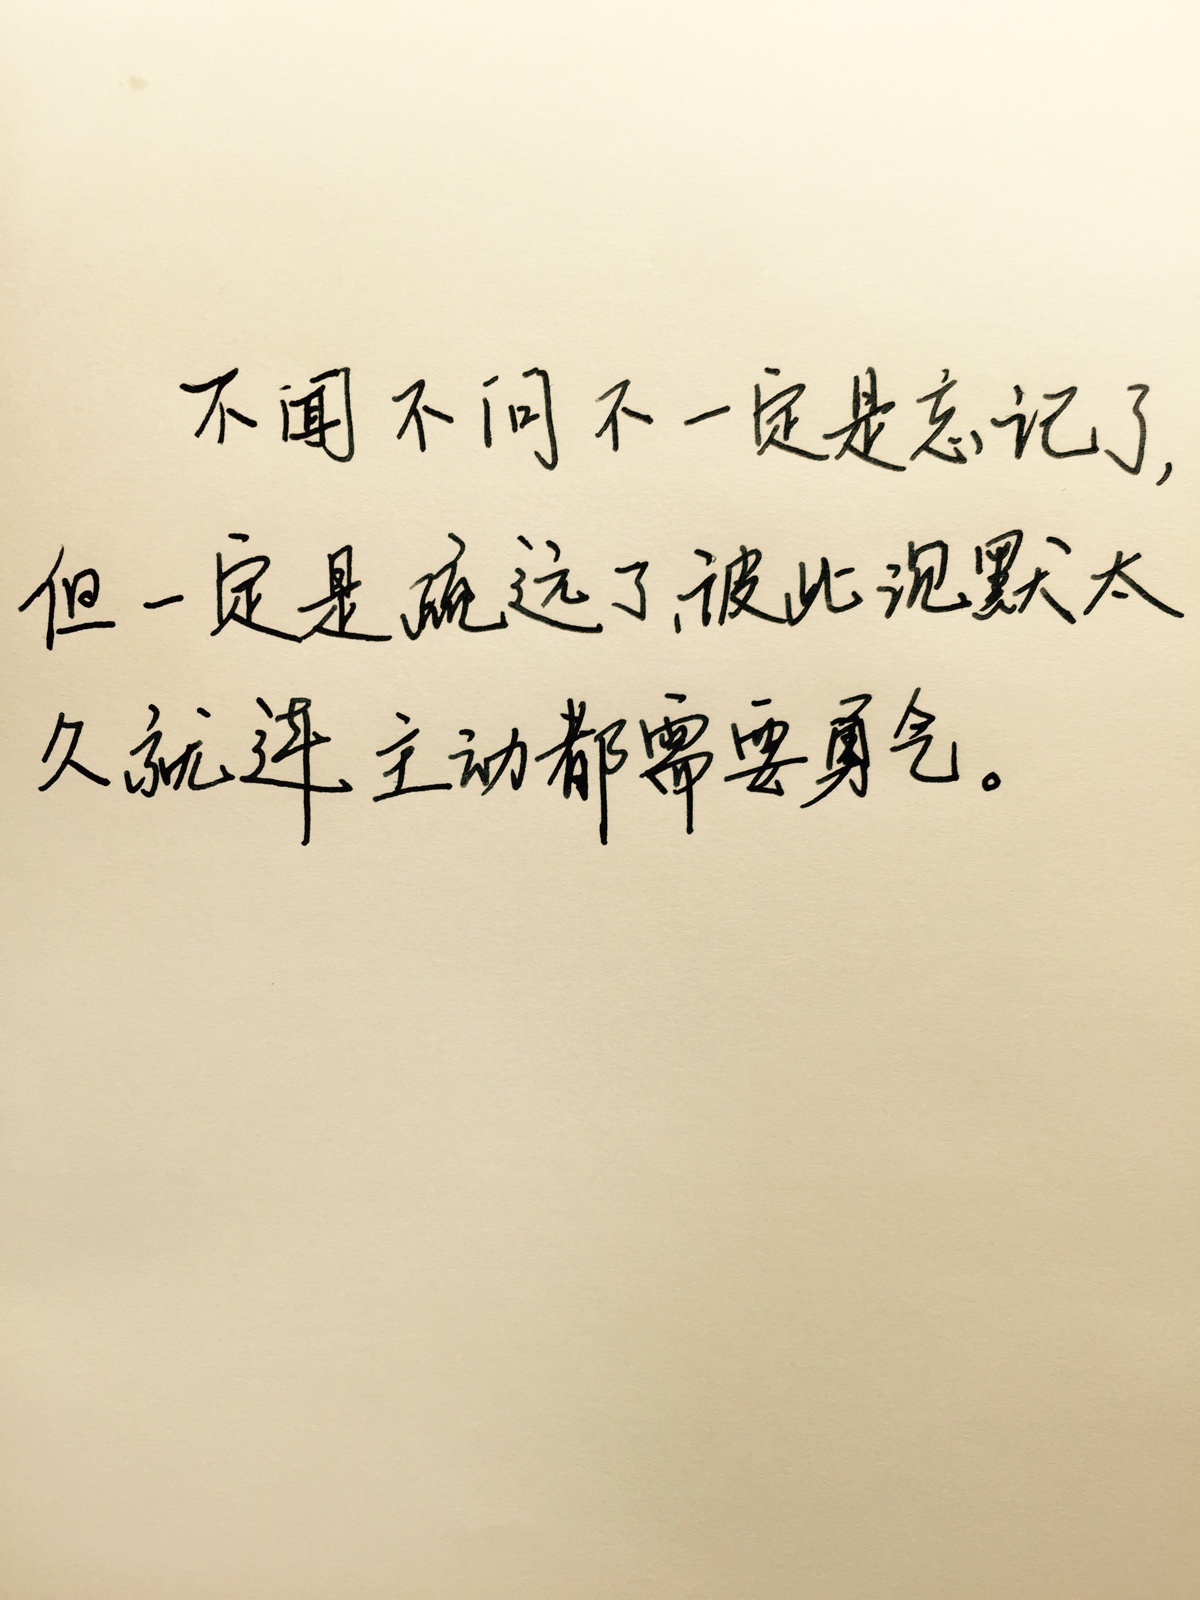 不闻不问不一定是忘记了,
但一定是疏远了,彼此沉默太
久就连主动都需要勇气。